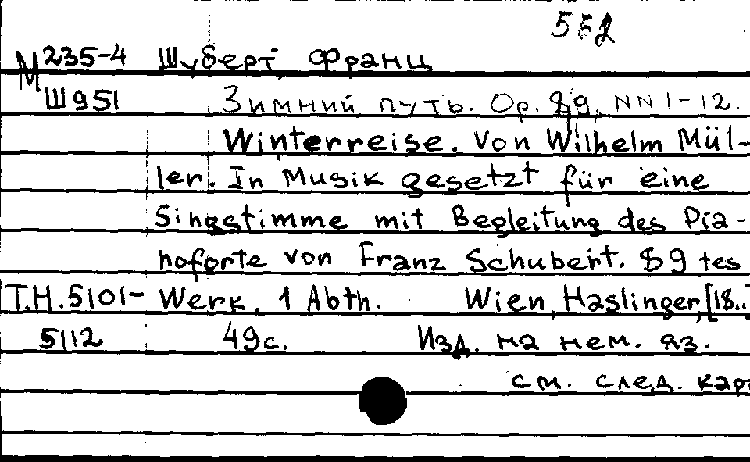 552
М 235-4 Шуберт, Франц
Ш951 Зимний путь. Op. 89, NN 1-12.
Winterreise. Von Wilhelm Mül-
ler. In Musik gesetzt für eine
Singstimme mit Begleitung des Pia-
noforte von Franz Schubert. 89tes
Т.Н.5101- Werk. 1 Abth. Wien, Haslinger, [18..]
5112 49с. Изд. на нем. яз.
см. след. карт